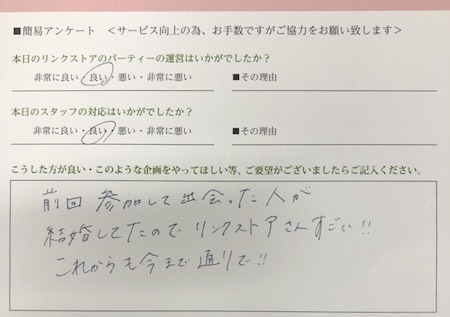 ■簡易アンケート　＜サービス向上の為、お手数ですがご協力をお願い致します＞
本日のリンクストアのパーティーの運営はいかがでしたか？
非常に良い・良い・悪い・非常に悪い　■その理由
本日のスタッフの対応はいかがでしたか？
非常に良い・良い・悪い・非常に悪い　■その理由
こうした方が良い・このような企画をやってほしい等、ご要望がございましたらご記入ください。
前回 参加して出会った人が
結婚してたのでリンクストアさんすごい!!
これからも今まで通りで!!